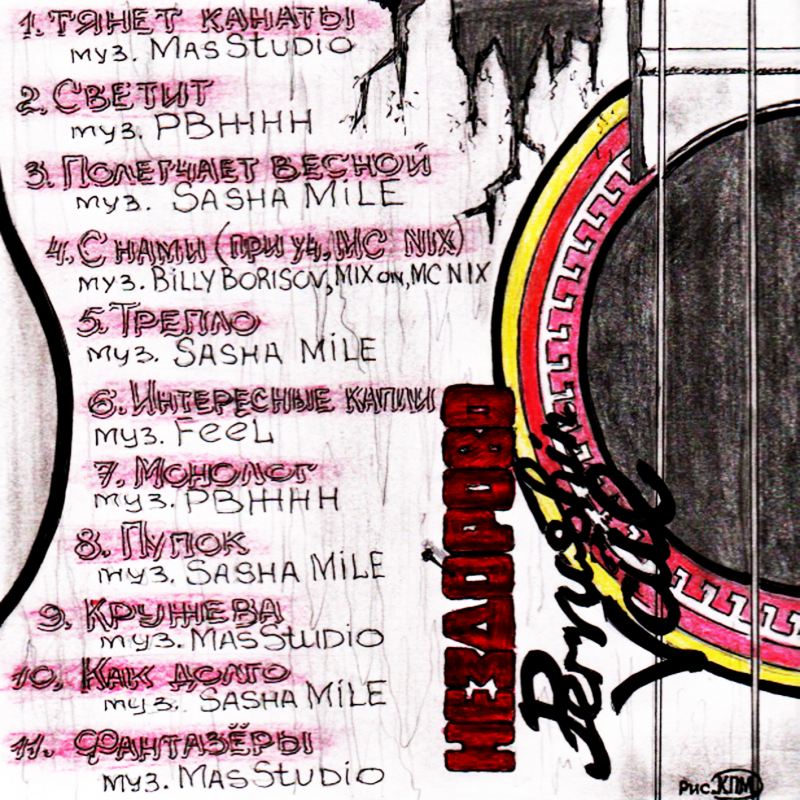 1. ТЯНЕТ КАНАТЫ
муз. MasStudio
2. СВЕТИТ
муз. РВННН
3. ПОЛЕГЧАЕТ ВЕСНОЙ
муз. SASHA MiLE
4. С НАМИ (ПРИ УЧ. MC NIX)
муз. BiLLY BORISOV, MIXON, MC NIX
5. ТРЕПЛО
муз. SASHA MiLE
6. ИНТЕРЕСНЫЕ КАПЛИ
муз. FeeL
7. МОНОЛОГ
муз. РВННН
8. ПУПОК
муз. SASHA MiLE
9. КРУЖЕВА
муз. MASStudio
10. КАК ДОЛГО
муз. SASHA MiLE
11. ФАНТАЗЁРЫ
муз. MASStudio
НЕЗДОРОВО
Рис. КПМ